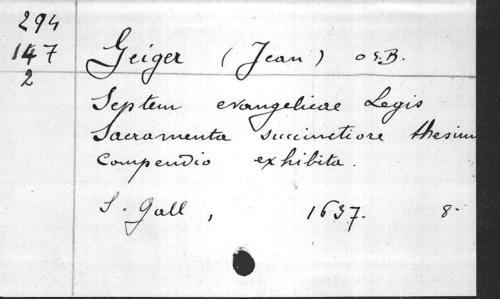 294
147
2
Geiger (Jean) O.S.B.
Septem evangelicae Legis
Sacramenta succinctiore thesium
compendio exhibita.
S. Gall, 1637. 8-